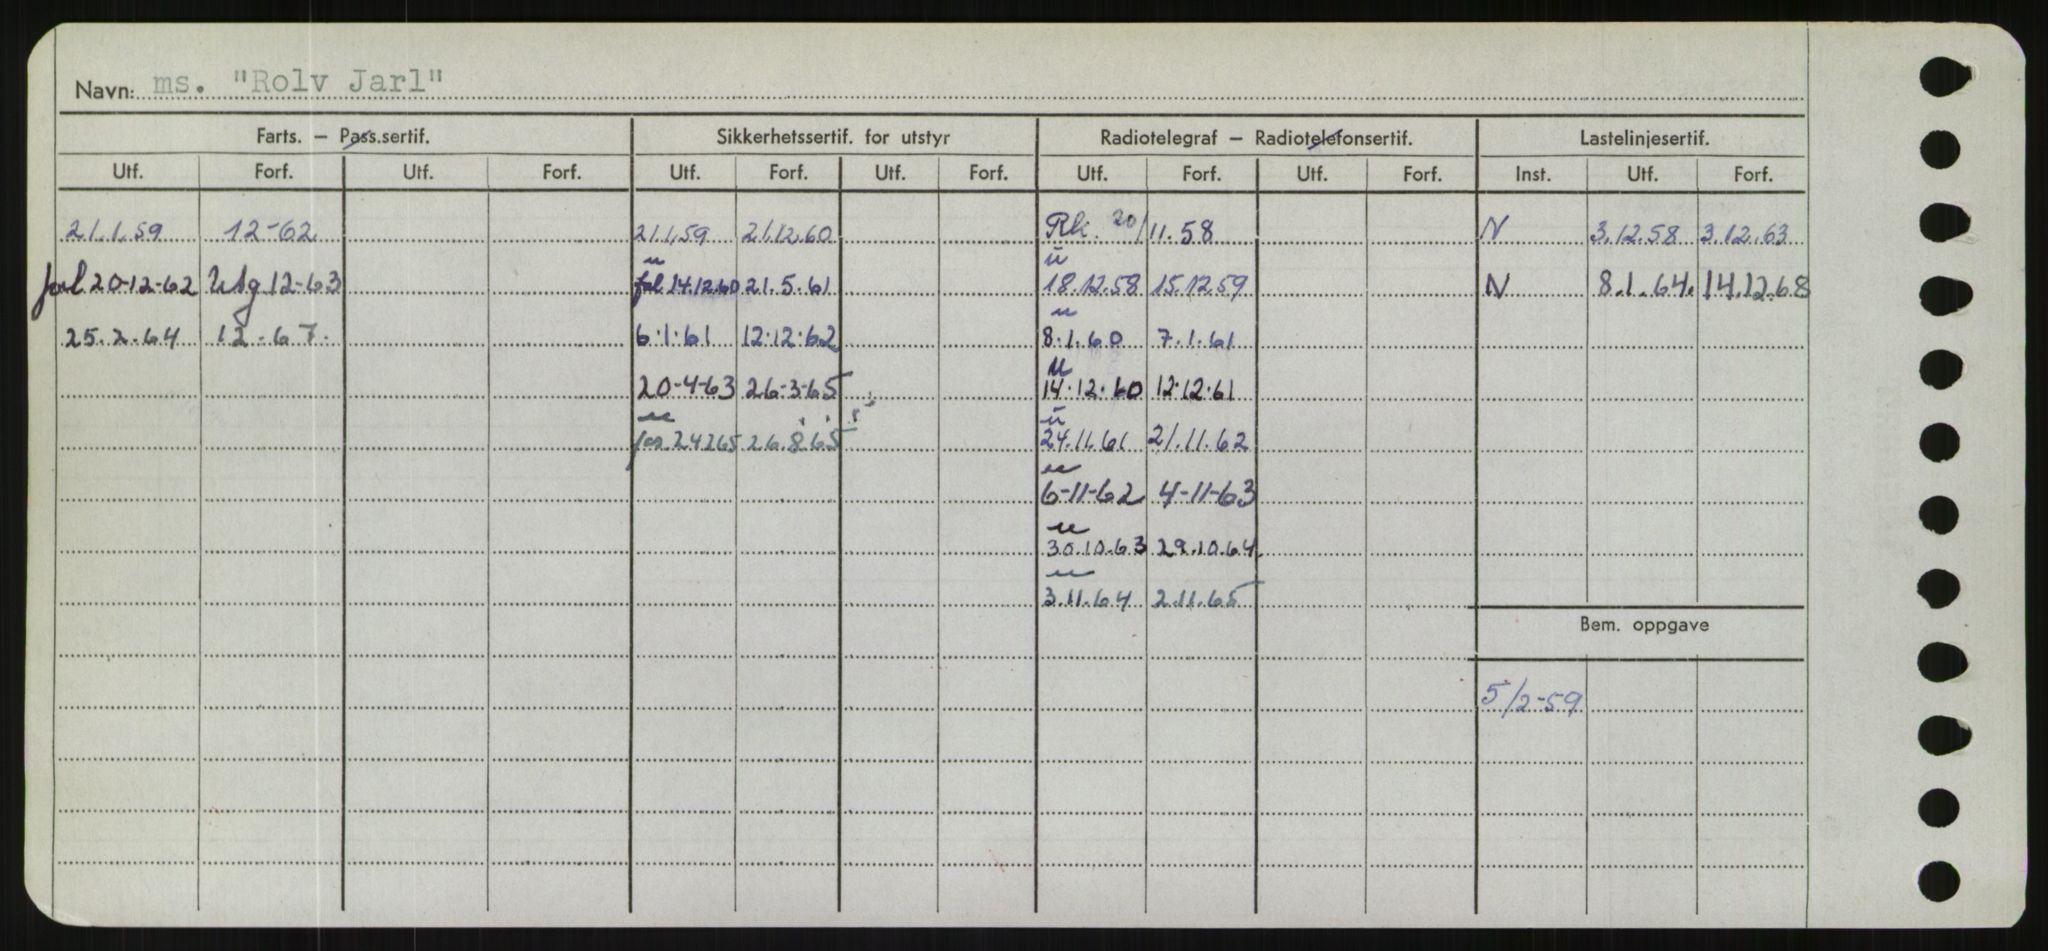 Navn: ms. "Rolv Jarl"
Farts. — Pass.sertif. Sikkerhetssertif. for utstyr Radiotelegraf — Radiotelefonsertif. Lastelinjesertif.
Utf. Forf. Utf. Forf. Utf. Forf. Utf. Forf. Utf. Forf. Utf. Forf. Inst. Utf. Forf.
21.1.59 12-62 21.1.59 21.12.60 Rk. 20/11.58 N 3.12.58 3.12.63
u ü
20-12-62 12-63 14.12.60 21.5.61 18.12.58 15.12.59 N 8.1.64. 14.12.68
u
25.2.64 12-67. 6.1.61 12.12.62 8.1.60 7.1.61
u
20-4-63 26-3-65 14.12.60 12.12.61
u ü
24265 26.8.65 24.11.61 21.11.62
u
6-11-62 4-11-63
u
30.10.63 29.10.64.
u
3.11.64 2.11.65
Bem. oppgave
5/2-59